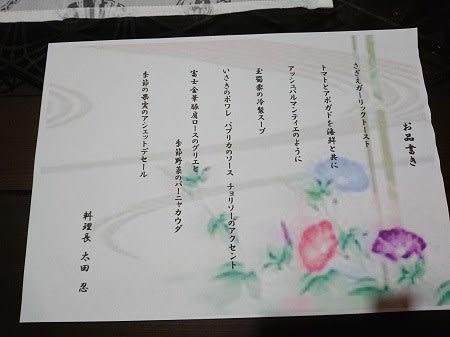 お品書き
さざえガーリックトースト
トマトとアボガドを海鮮と共に
アッシュパルマンティエのように
玉蜀黍の冷製スープ
いさきのポワレ パプリカのソース チョリソーのアクセント
富士金華豚肩ロースのグリエと
季節野菜のバーニャカウダ
季節の果実のアシェットデセール
料理長 太田 忍